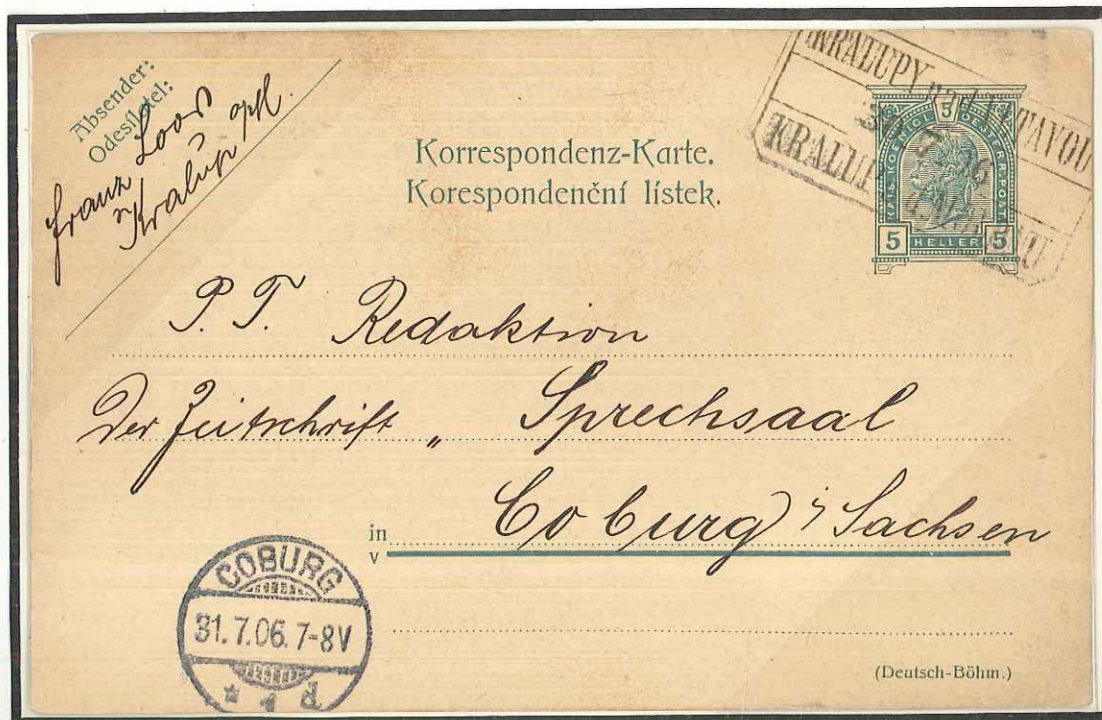 Absender:
Odesílatel:
Franz Loos
Kralup
Korrespondenz-Karte.
Korespondenční lístek.
KRALUPY nad VLTAVOU
KRALUP
KAIS. KOENIGL. 5 OESTERR. POST
5 HELLER 5
P. T. Redaktion
Der Zeitschrift „ Sprechsaal
in
v
Coburg i/ Sachsen
COBURG
31.7.06. 7-8V
(Deutsch-Böhm.)